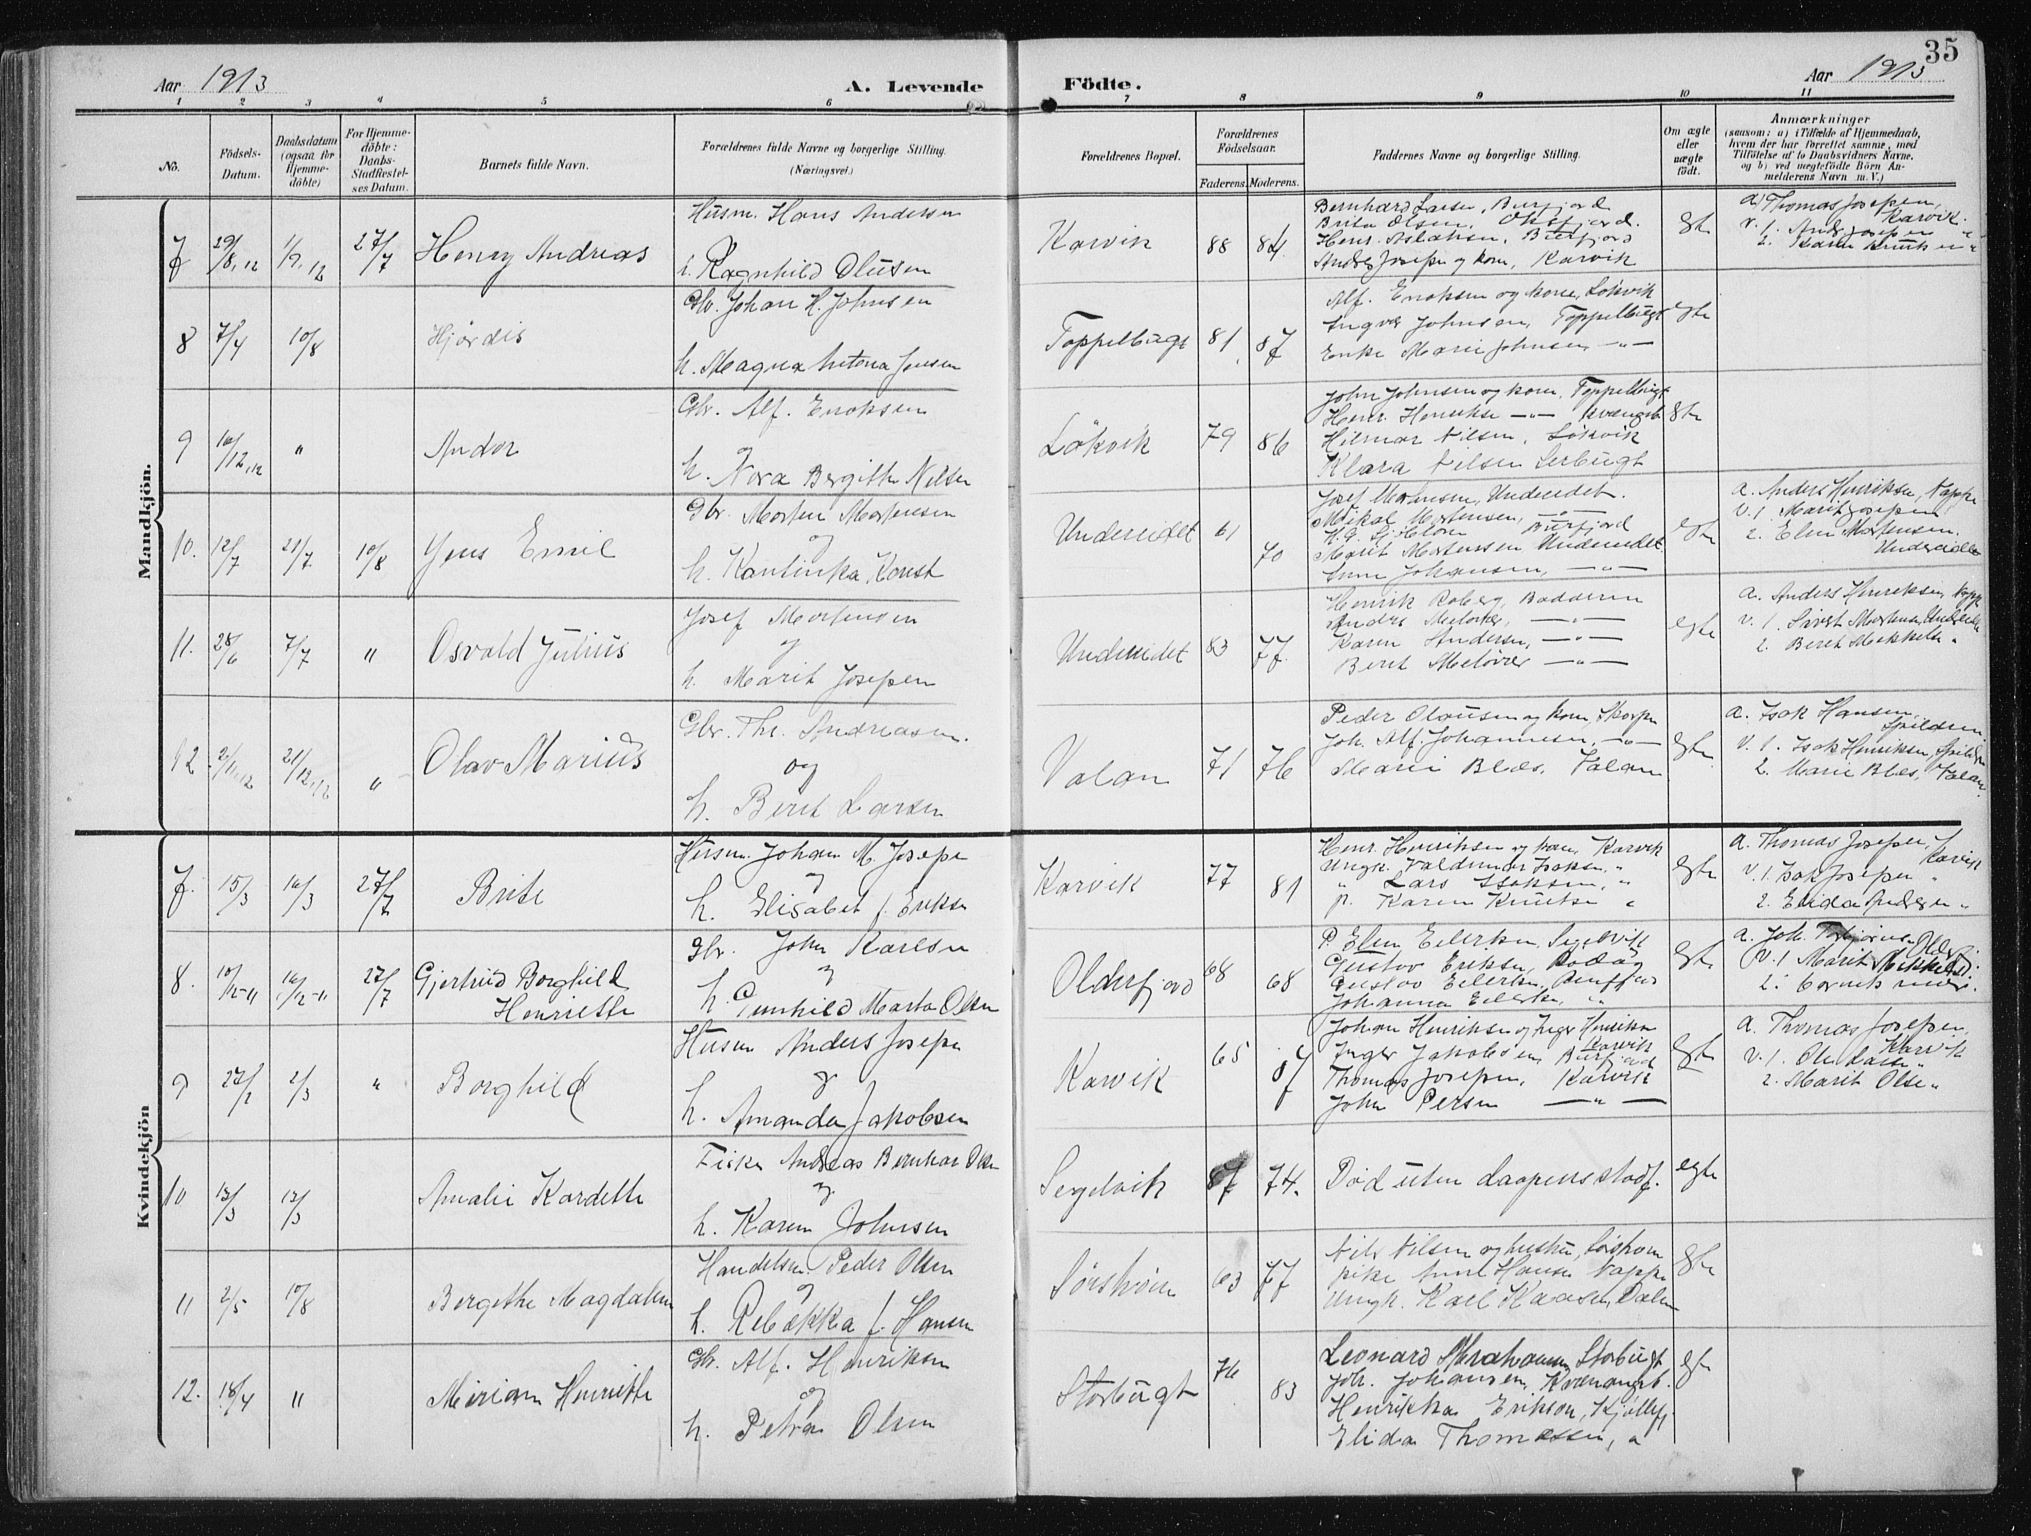 35
Aar 1913
A. Levende
Födte.
Aar 1913
1 2 3 4 5 6 7 8 9 10 11
No.
Födsels-
Datum.
Daabsdatum
(ogsaa for
Hjemme-
döbte)
For Hjemme-
döbte:
Daabs-
Stadfæstel-
ses Datum.
Barnets fulde Navn.
Forældrenes fulde Navne og borgerlige Stilling.
(Næringsvei.)
Forældrenes Bopæl.
Forældrenes
Födselsaar.
Faderens. Moderens.
Faddernes Navne og borgerlige Stilling.
Om ægte
eller
uægte
födt.
Anmærkninger
(saasom: a) i Tilfælde af Hjemmedaab,
hvem der har forrettet samme, med
Tilföielse af to Daabsvidners Navne,
og b) ved uægtefödte Börn An-
melderens Navn m. V.)
Mandkjön.
7 29/8.12 1/9.12 27/7 Henry Andreas
Husm. Hans Andersen
h. Ragnhild Olusen
Karvik 88 84
Bernhard Larsen, Burfjord
Brita Olsen,
Henr. Aslaksen, Burfjord
Anders Josepsen og kone, Karvik
egte
a) Thomas Josepsen,
Karvik.
v. 1. Anders Josepsen "
8 7/4 10/8 Hjørdis
Gbr. Johan H. Johnsen
h. Magna Antona Jensen
Toppelbugt 81 87
Alf. Enoksen og kone, Løkvik
Ingver Johnsen, Toppelbugt
Enke Marie Johnsen —"—
egte
9 16/12.12 " Andor
Gbr. Alf. Enoksen
og
h. Nora Bergitte Nilsen
Løkvik 79 86
John Johnsen og kone Toppelbugt
Henr. Henrikse —"—
Hilmar Nilsen, Løkvik
Klara Nilsen Lerbugt
egte
10. 12/7 21/7 10/8 Jens Emil
Gbr. Morten Mortensen
og
h. Kantinka Konst
Undereidet 61 70
Josef Mortensen, Undereidet.
Mikal Mortensen, —"—
Burfjord
Marit Mortensen Undereidet
Anne Johansen, —"—
egte
a. Anders Henriksen,
v. 1. Marit Josepsen
2. Elen Mortensen.
Undereidet
11. 28/6 7/7 " Osvald Julius
Josef Mortensen
og
h. Marit Josepsen
Undereidet 83 77.
Henrik Roberg, Badderen
—"—
Karen Andersen, —"—
Berit —"—
egte
a. Anders Henriksen,
v. 1. Sivert Mortensen, Undereide
2. Beret Mikkelsen "
12 2/11.12 21/12.12 " Olav Marius
Gbr. Thr. Andreasen.
og
h. Berit Larsen
Valan 71 76
Peder Olausen og kone
Joh. Alf. Johannesen, —"—
Marie Blæs, Valan
egte
a. Isak Hansen
Spildren.
v. 1. Isak Henriksen, Spildren
2. Marie Blæs, Valan.
Kvindekjön
7. 15/3 16/3 27/7 Brite
Husm. Johan M. Josepse
og
h. Elisabet f. Erikse
Karvik 77 81
Henr. Henriksen og kone, Karvik
Ungk. Valdemar Isaksen, "
" Lars Isaksen, "
p. Karen Knutse "
egte
a. Thomas Josepsen,
Karvik
v. 1. Isak Josepsen "
2. Elida Andersen "
8. 10/12-11 16/12-11 27/7 Gjertrud Borghild
Henriette
Gbr. John Karlsen
og
h. Gunhild Marta Olsen
Olderfjord 68 68
P. Elen Eilerksen, Segelvik
Gustav Eriksen,
Gustav Eilerksen, Burfjord
Johanna Eilerksen, "
egte
a. Joh.
v. 1 Marit Mikkelsen
2.
9 27/2 2/3 " Borghild
Husm Anders Josepse
og
h. Amanda Jakobsen
Karvik 65 87
Johan Henriksen og Inger Henriksen
Karvik
Inger Jakobsen Burfjord
Thomas Josepsen, Karvik
John Persen —"—
egte
a. Thomas Josepsen,
Karvik
v. 1. Ole Larse "
2. Marit Olse "
10 12/3 12/3 Amalie Kordette
Fisker Andreas Bernhar Olsen
og
h. Karen Johnsen
Segelvik 67 74.
Død uten daapens stadf.
egte
11 2/5 10/8 Bergithe Magdalene
Handelsm. Peder Olsen
og
h. Rebekka f. Hansen
Sørstrøm 63 77
Nils Nilsen og hustru, Sørstrøm
pike Anne Hansen
Ungk. Karl Kaasen,
egte
12. 18/4 " Miriam Henriette
Gbr. Alf. Henriksen
og
h. Petra Olsen
Storbugt 76 83
Leonard Abrahamsen, Storbugt
Joh. Johansen,
Henrikka Erikson,
Elida Thomassen, "
egte